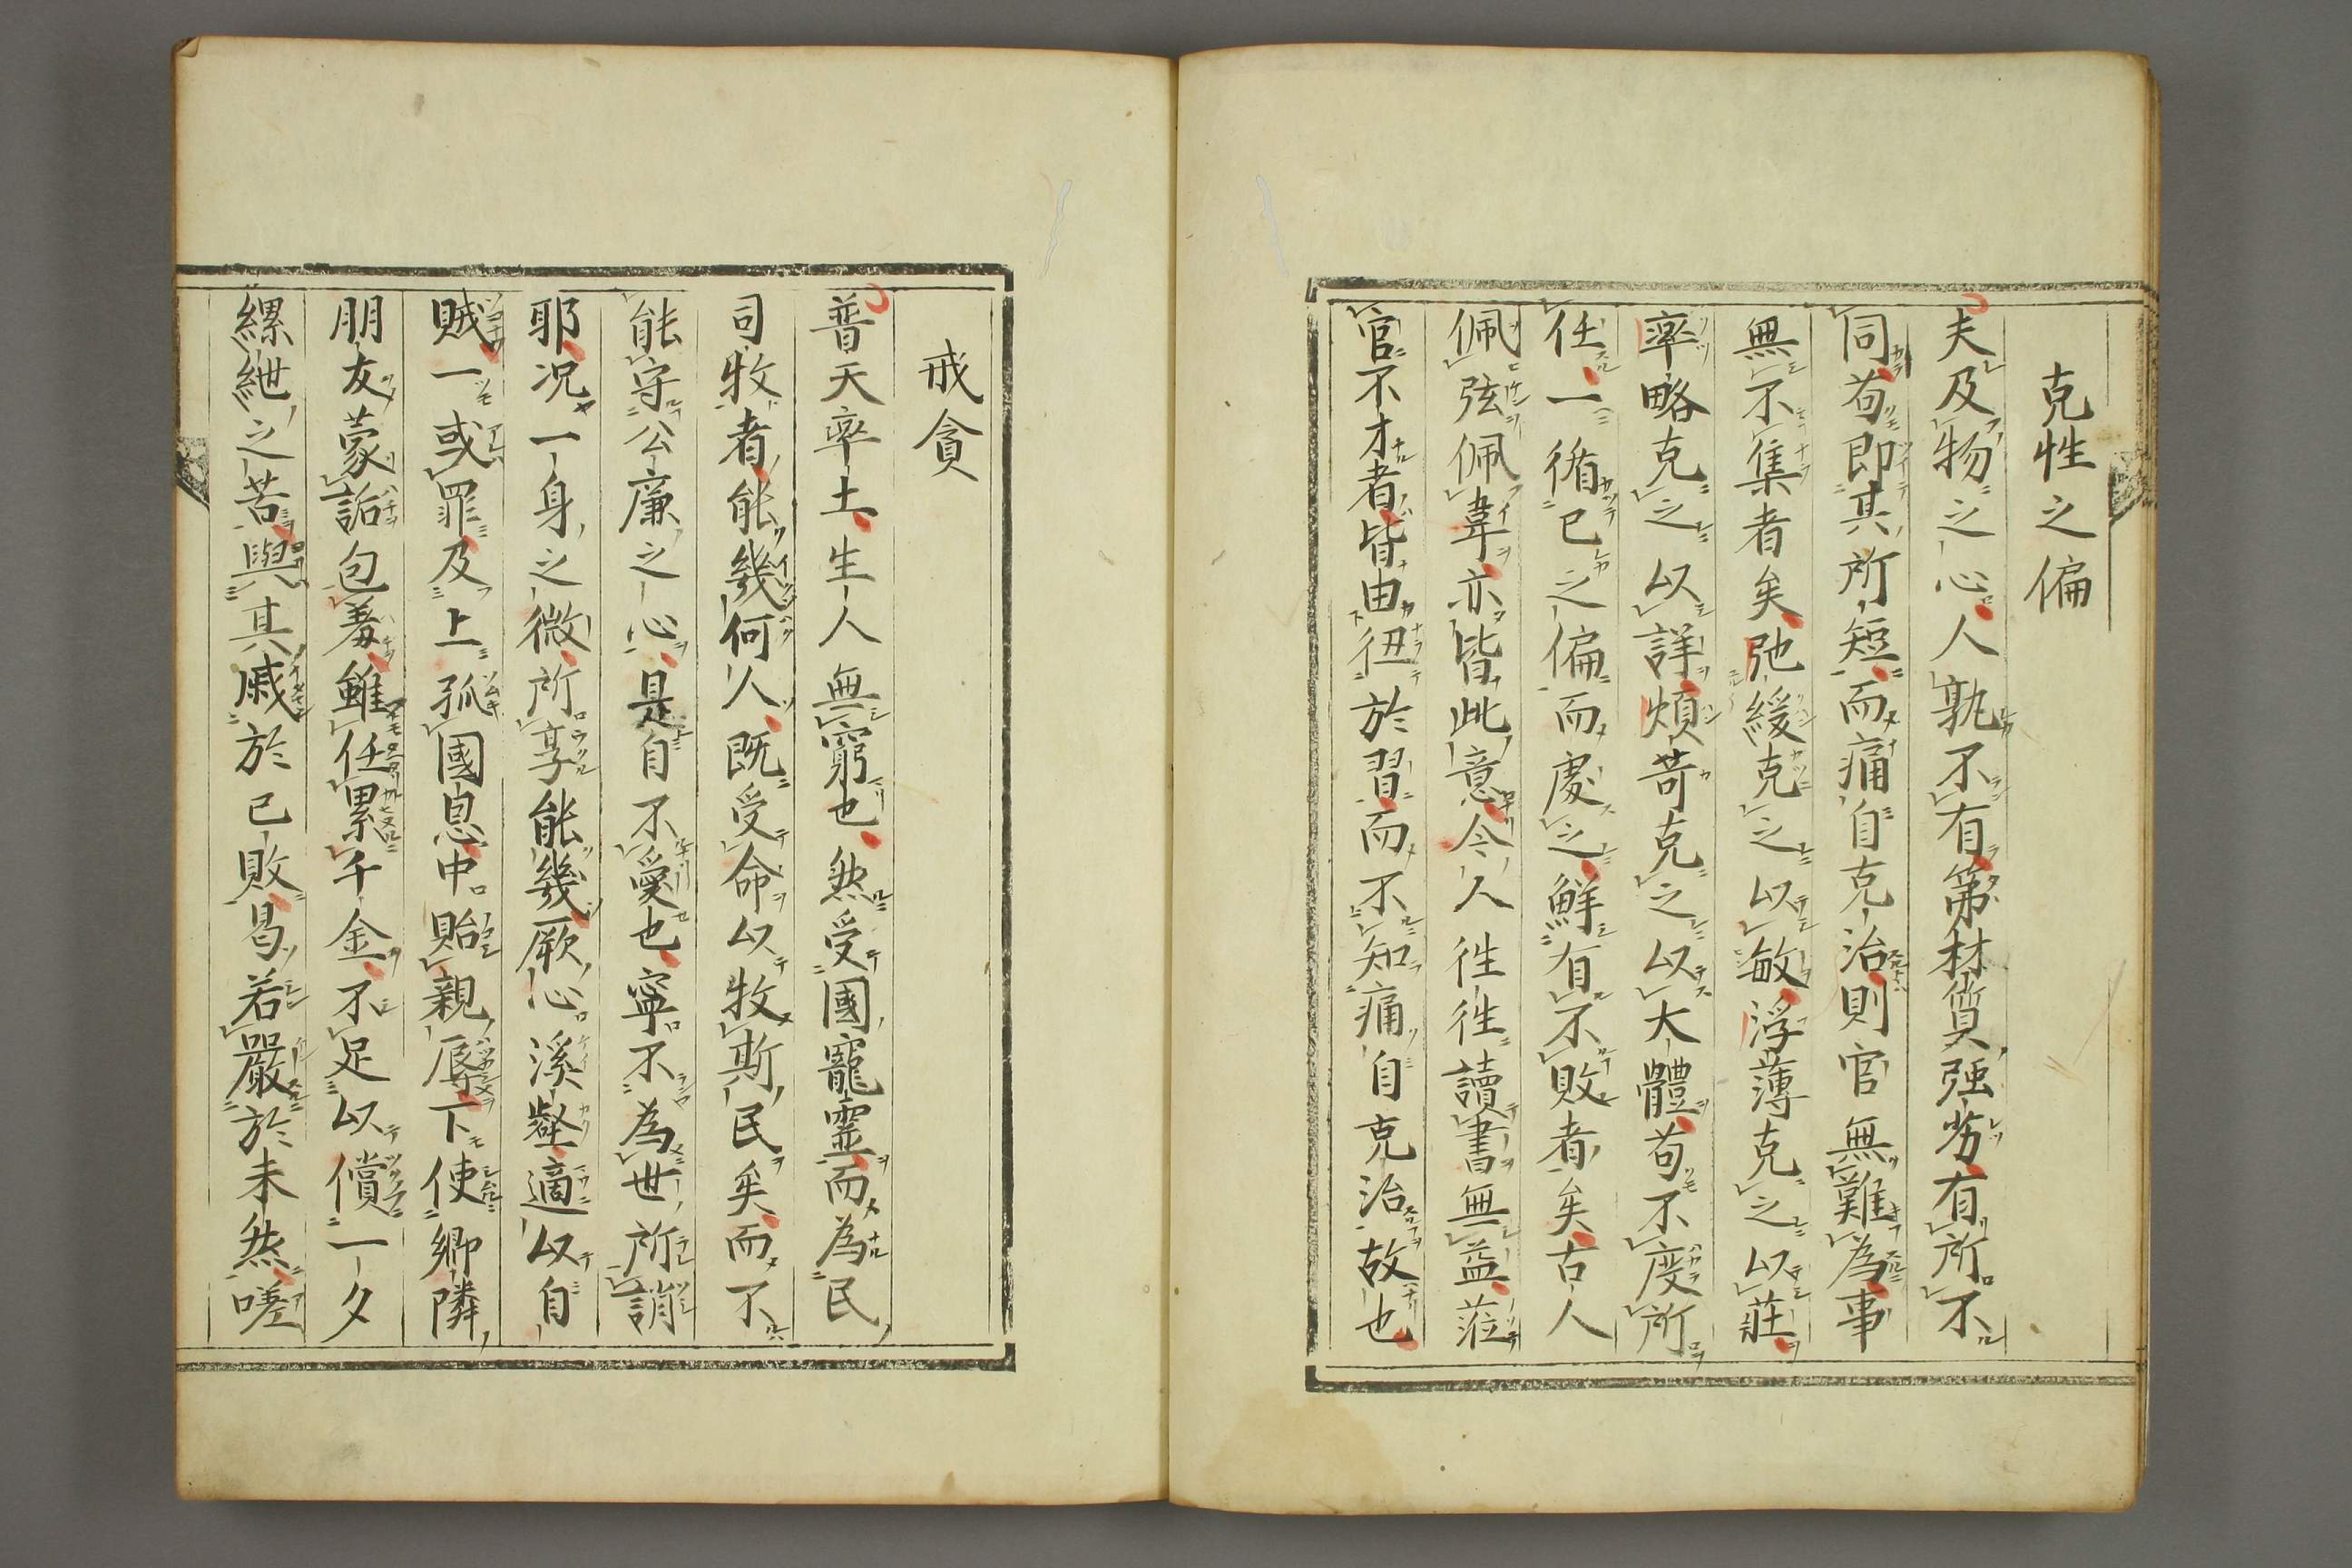 克性之偏
夫及物之心人孰不有第材質强劣有所不
同苟即其所短而痛自克治則官無難為事
無不集者矣弛緩克之以敏浮薄克之以莊
率略克之以詳煩苛克之以大體苟不度所
任一循已之偏而處之鮮有不敗者矣古人
佩弦佩韋亦皆此意令人徃徃讀書無益蒞
官不才者皆由狃於習而不知痛自克治故也
戒貪
普天率土生人無窮也然受國寵靈而為民
司牧者能幾何人既受命以牧斯民矣而不
能守公廉之心是自不愛也寧不為世所誚
耶况一身之微所享能幾厥心溪壑適以自
賊一或罪及上孤國息中貽親辱下使鄉隣
朋友蒙詬包羞雖任累千金不足以償一夕
縲紲之苦與其戚於已敗曷若嚴於未然嗟